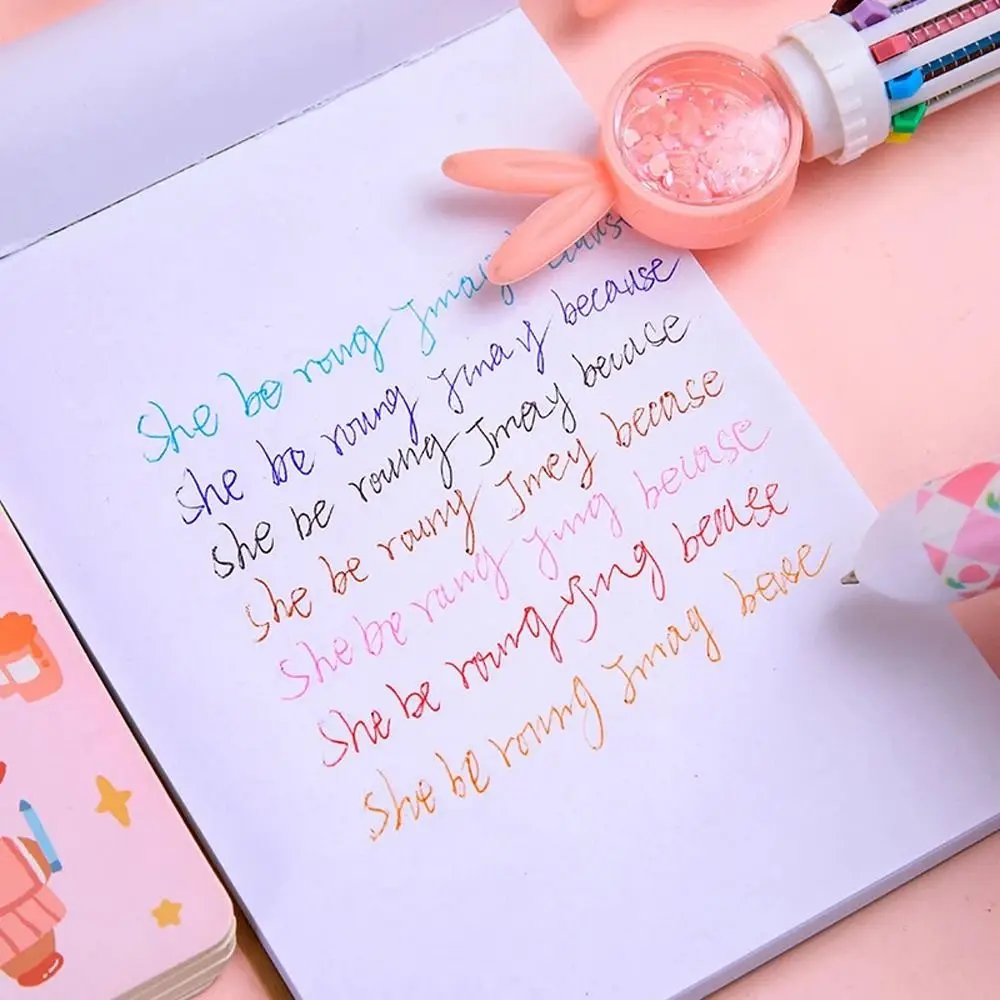 she be roung Jmay
she be roung Jmay because
she be roung Jmay becuase
she be rouny Jmey becase
she be rung ying becuase
she be roung yng becuase
she be roung Jmay becase